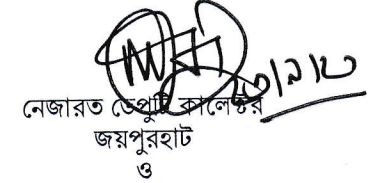 নেজারত ডেপুটি কালেক্টর
জয়পুরহাট
ও